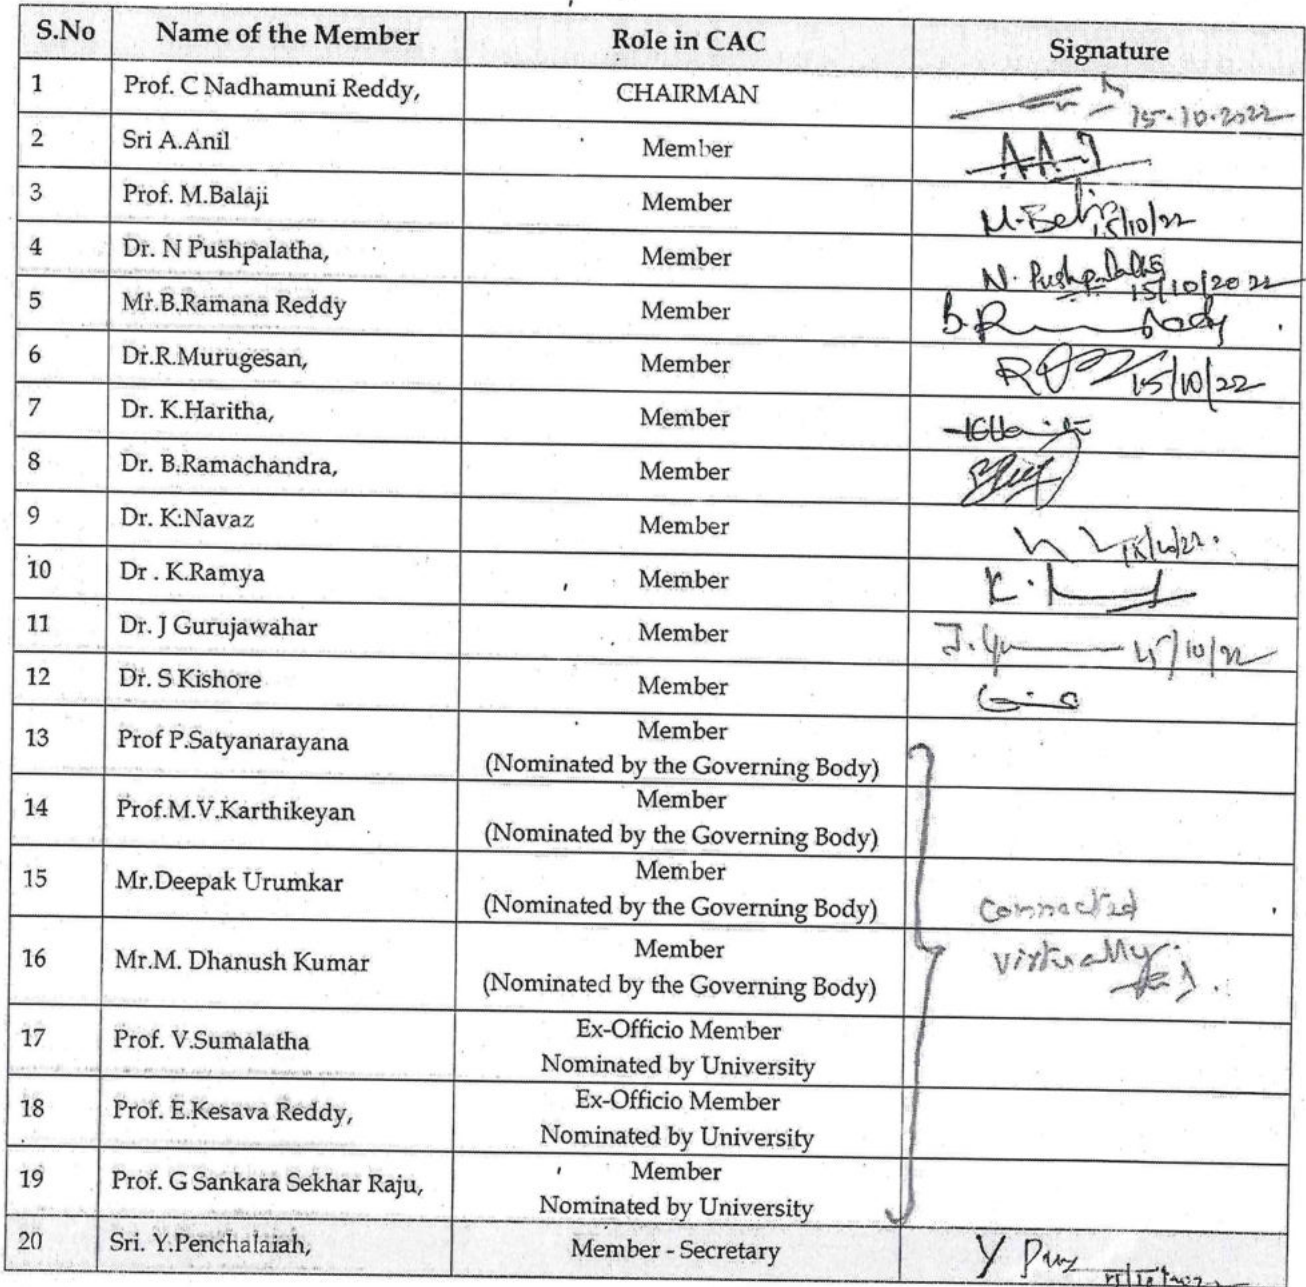 S.No Name of the Member Role in CAC Signature
1 Prof. C Nadhamuni Reddy, CHAIRMAN 15-10-2022
2 Sri A.Anil Member
3 Prof. M.Balaji Member M. 15/10/22
4 Dr. N Pushpalatha, Member N. Pushpalatha 15/10/2022
5 Mr.B.Ramana Reddy Member B.
6 Dr.R.Murugesan, Member 15/10/22
7 Dr. K.Haritha, Member
8 Dr. B.Ramachandra, Member
9 Dr. K.Navaz Member
10 Dr . K.Ramya Member K.
11 Dr. J Gurujawahar Member J. 15/10/22
12 Dr. S Kishore Member
13 Prof P.Satyanarayana Member
(Nominated by the Governing Body)
14 Prof.M.V.Karthikeyan Member
(Nominated by the Governing Body)
15 Mr.Deepak Urumkar Member
(Nominated by the Governing Body) Connected
16 Mr.M. Dhanush Kumar Member virtually
(Nominated by the Governing Body)
17 Prof. V.Sumalatha Ex-Officio Member
Nominated by University
18 Prof. E.Kesava Reddy, Ex-Officio Member
Nominated by University
19 Prof. G Sankara Sekhar Raju, Member
Nominated by University
20 Sri. Y.Penchalaiah, Member - Secretary Y